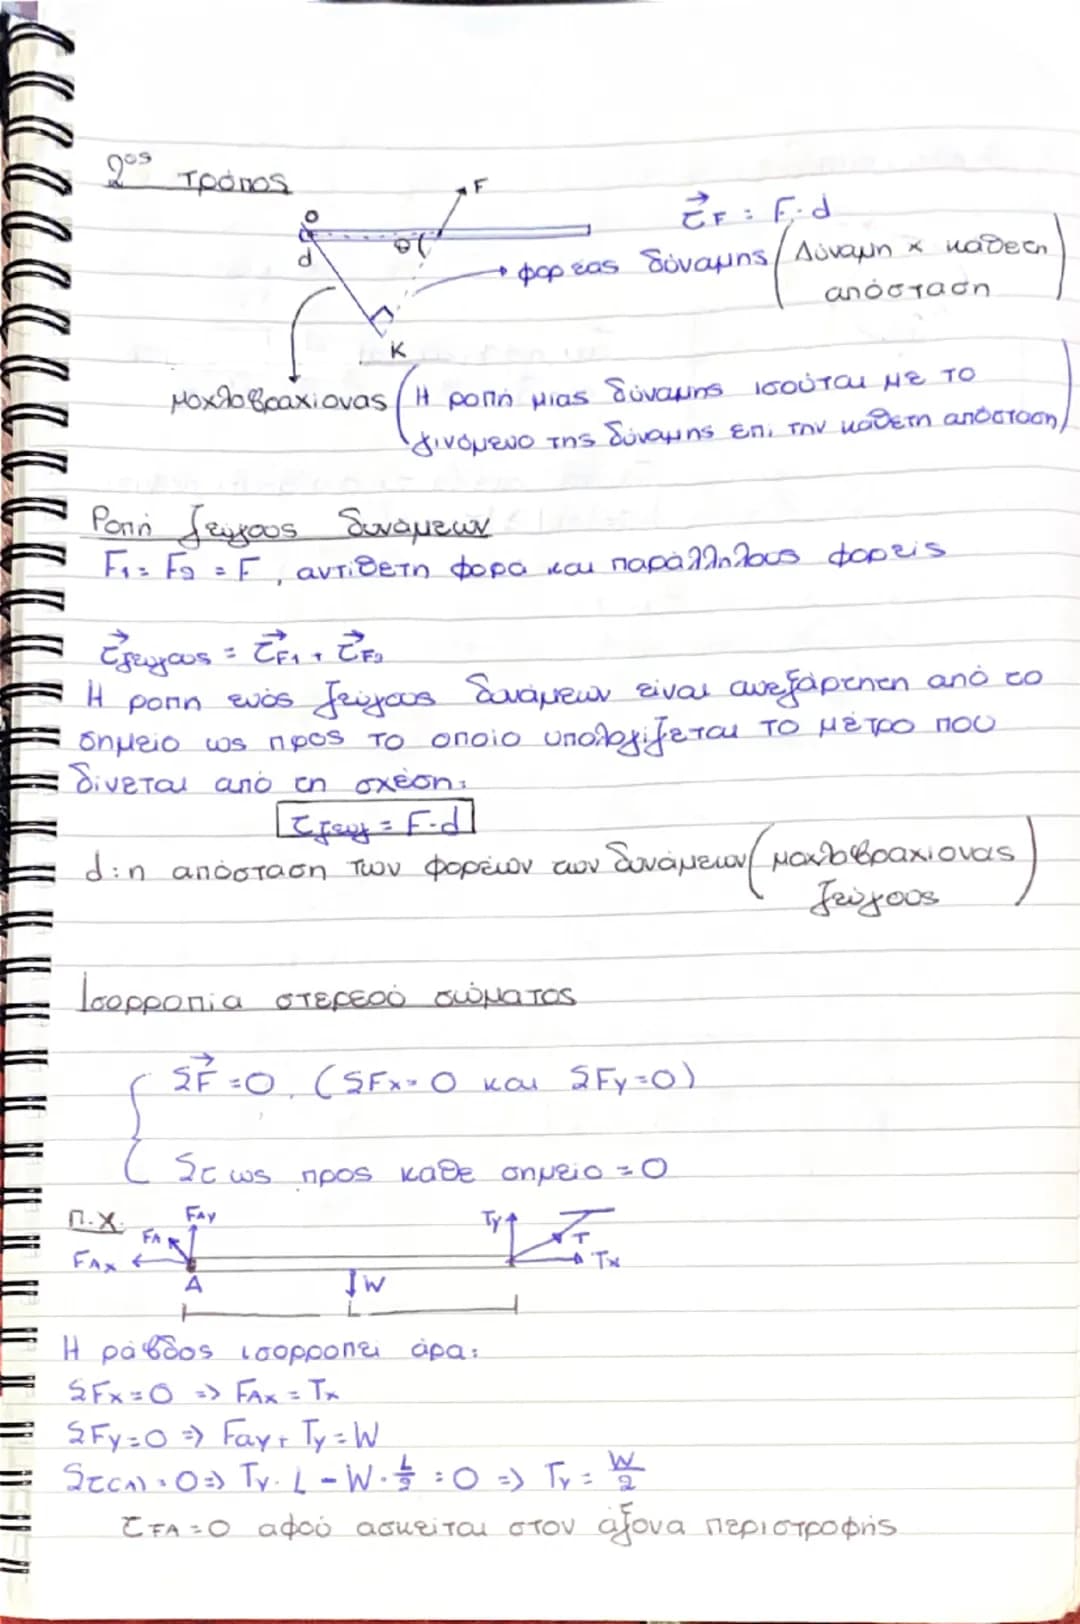 2ος τρόπος
F
O
d
θ
K
τ⃗F = F·d
φορέας δύναμης (Δύναμη x κάθετη
απόσταση)
μοχλοβραχίονας (Η ροπή μιας δύναμης ισούται με το
γινόμενο της δύναμης επί την κάθετη απόσταση)
Ροπή ζεύγους δυνάμεων
F1 = F2 = F, αντίθετη φορά και παράλληλους φορείς
τ⃗ζεύγους = τ⃗F1 + τ⃗F2
Η ροπή ενός ζεύγους δυνάμεων είναι ανεξάρτητη από το
σημείο ως προς το οποίο υπολογίζεται το μέτρο που
δίνεται από τη σχέση:
τζευγ = F·d
d: η απόσταση των φορέων των δυνάμεων (μοχλοβραχίονας
ζεύγους)
Ισορροπία στερεού σώματος
ΣF⃗ = 0. (ΣFx = 0 και ΣFy = 0)
Στ ως προς κάθε σημείο = 0
π.χ.
FAy
FA
FAx
A
W
L
Ty
T
Tx
Η ράβδος ισορροπεί άρα:
ΣFx = 0 => FAx = Tx
ΣFy = 0 => FAy + Ty = W
Στ(Α) = 0 => Ty · L - W · L/2 = 0 => Ty = W/2
τFA = 0 αφού ασκείται στον άξονα περιστροφής